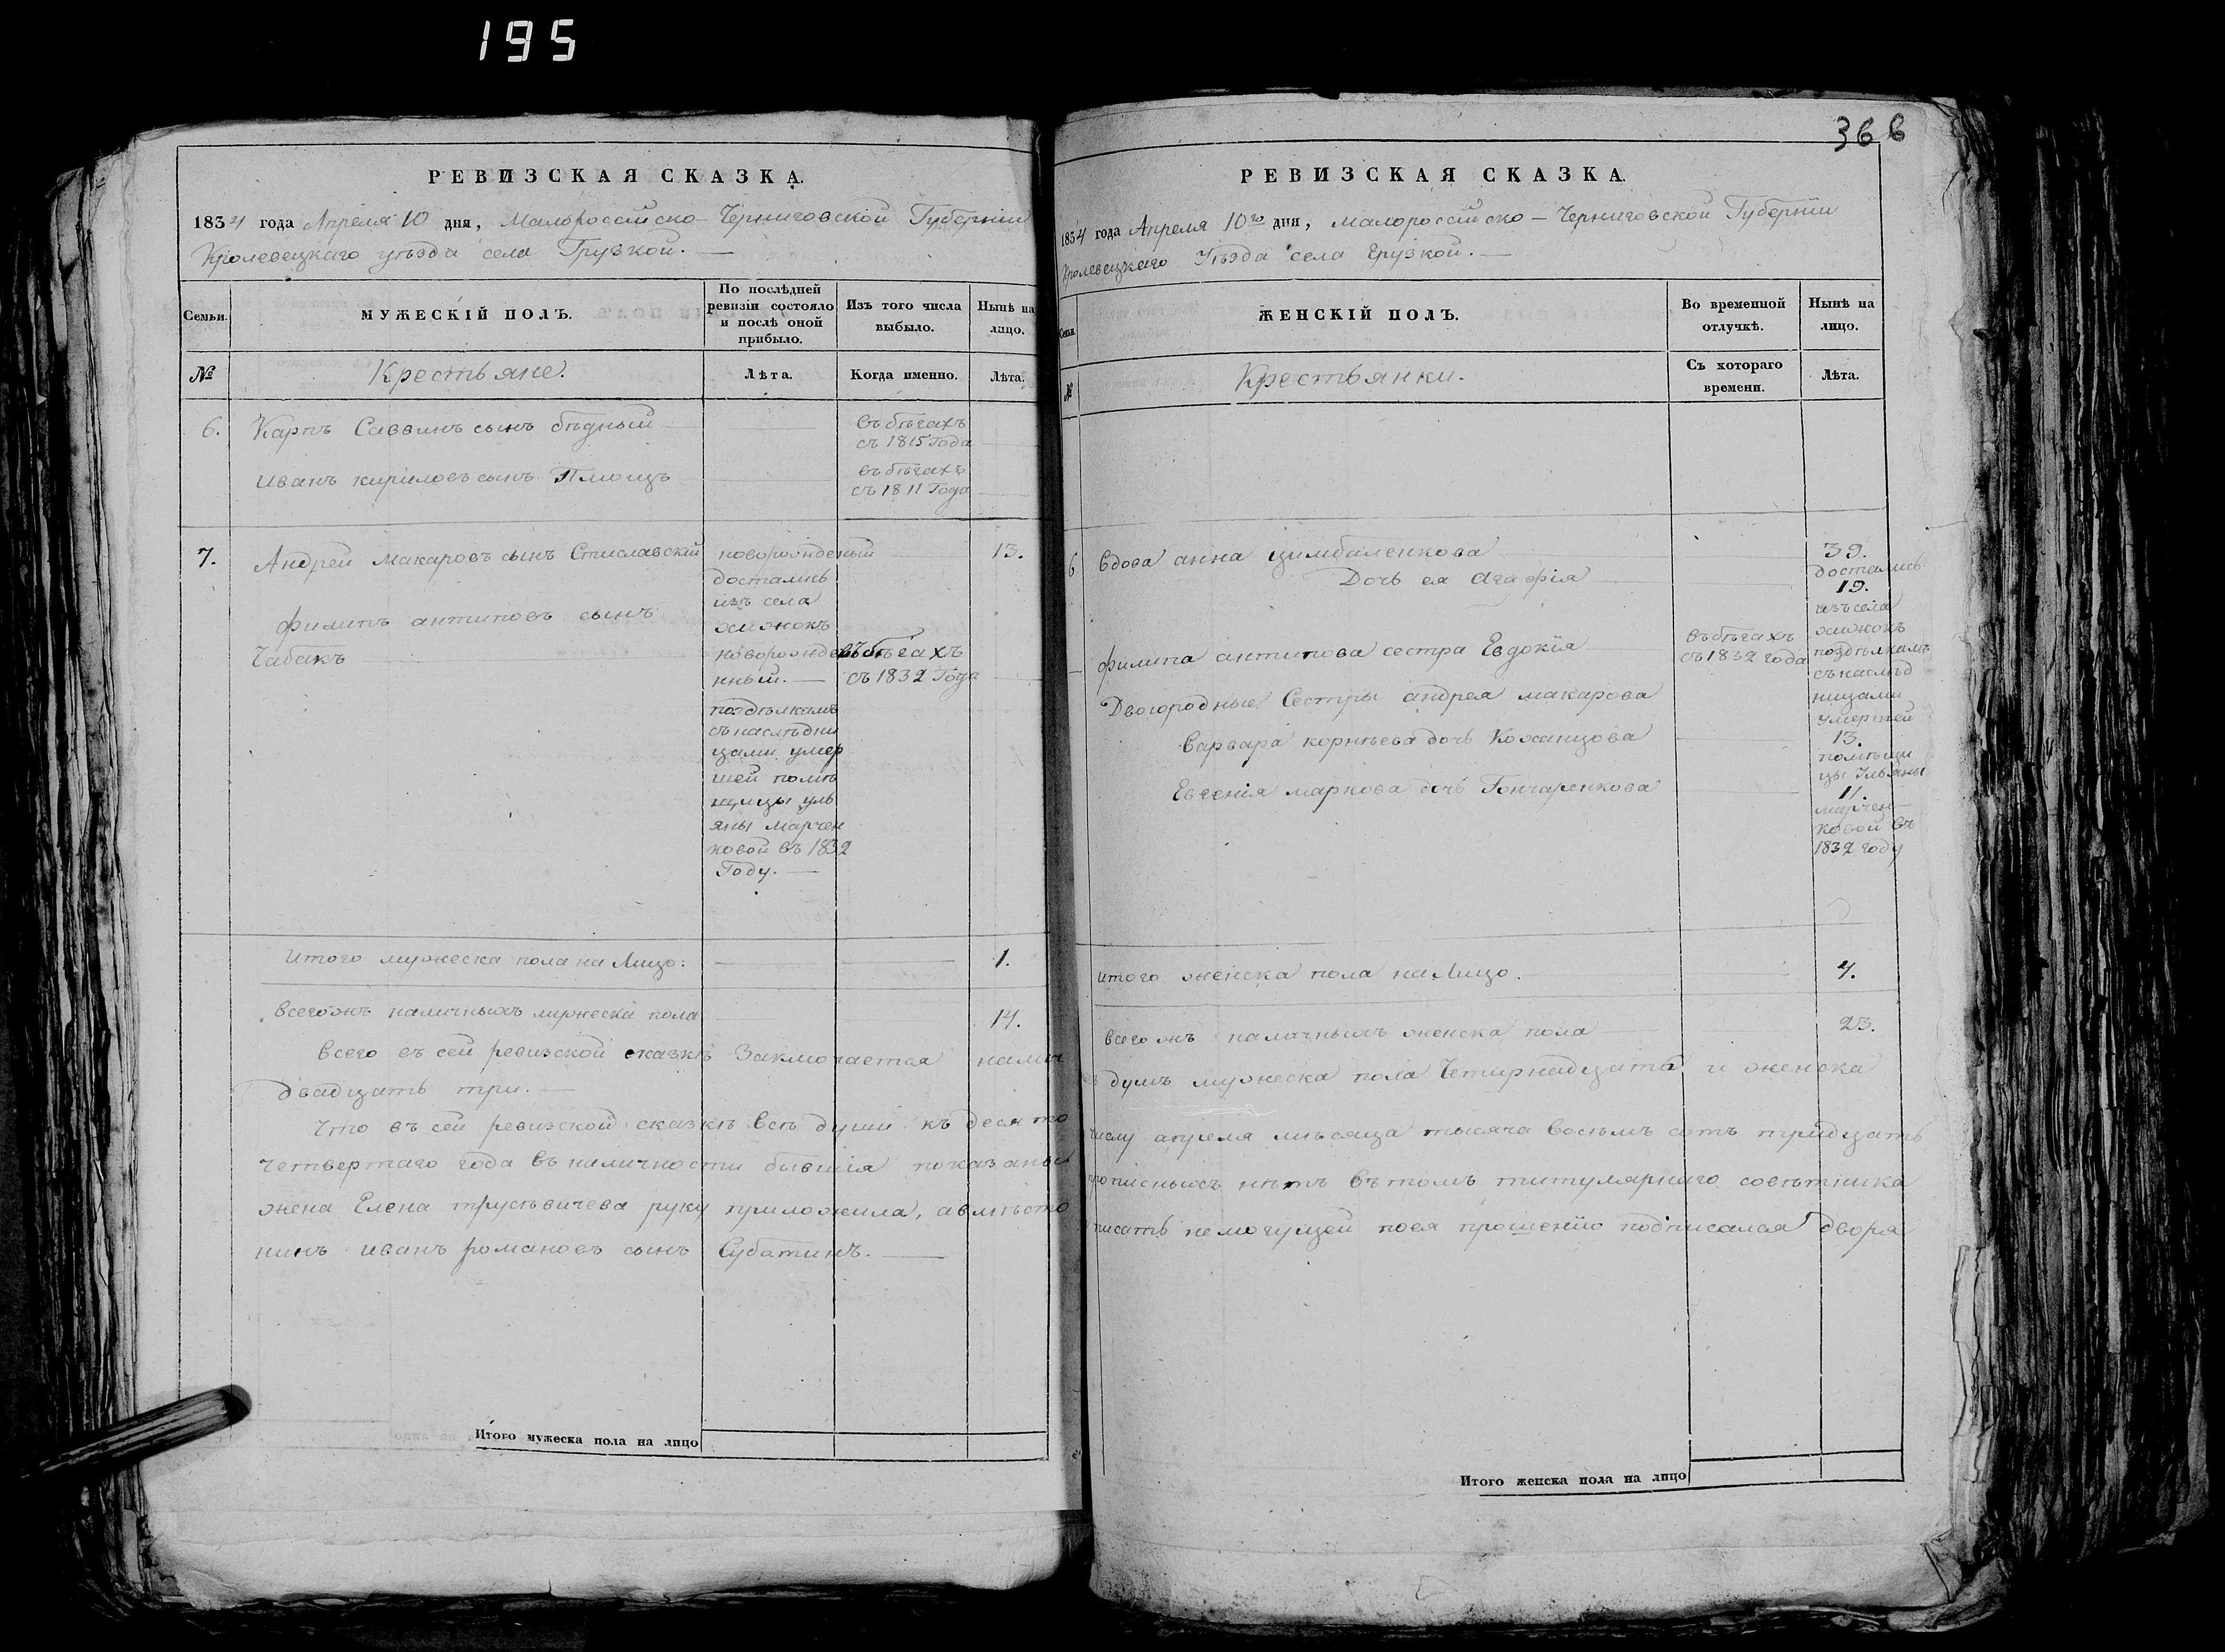 195
РЕВИЗСКАЯ СКАЗКА.
1834 года Апреля 10 дня, Малороссійско-Черниговской Губерніи
Кролевецкаго уѣзда села Грузкой.
Семьи.
МУЖЕСКІЙ ПОЛЪ.
По послѣдней
ревизіи состояло
и послѣ оной
прибыло.
Изъ того числа
выбыло.
Нынѣ на
лицо.
№
Крестьяне.
Лѣта.
Когда именно.
Лѣта.
6. Карпъ Саввинъ сынъ бѣдный
въ бѣгахъ
съ 1815 Года
Иванъ кириловъ сынъ
въ бѣгахъ
съ 1811 Года
7. Андрей Макаровъ сынъ Стиславскій новорожденый 13.
достались
изъ села
филипъ антиповъ сынъ
Чабакъ
новорожде
нный.
въ бѣгахъ
съ 1832 Года
поздѣлкамъ
съ наслѣдни
цами умер
шей помѣ
щицы уль
яны марчен
ковой въ 1832
Году.
Итого мужеска пола на Лицо: 1.
всегожъ наличныхъ мужеска пола 14.
всего въ сей ревизской сказкѣ Заключается налич
двадцать три.
Что въ сей ревизской сказкѣ всѣ души къ десято
четвертаго года въ наличности бывшія показаны
жена Елена трусѣвичева руку приложила, авмѣсто
нинъ иванъ романовъ сынъ Субатинъ.
Итого мужеска пола на лицо
366
РЕВИЗСКАЯ СКАЗКА.
1834 года Апреля 10го дня, малороссійско-Черниговской Губерніи
Кролевецкаго Уѣзда села Грузкой.
Семьи.
ЖЕНСКІЙ ПОЛЪ.
Во временной
отлучкѣ.
Нынѣ на
лицо.
№
Крестьянки.
Съ котораго
времени.
Лѣта.
6 вдова анна цимбаленкова 39.
достались
Дочь ея агафія 19.
изъ села
филипа антипова сестра Евдокія
въ бѣгахъ
съ 1832 года
поздѣлкамъ
съ наслѣд
ницами
умершей
Двоюродные Сестры андрея макарова
варвара корнѣева дочь Кожанцова 13.
помѣщи
цы Ульяны
Евгенія маркова дочь Гончаренкова 11.
марчен-
ковой въ
1832 году
итого женска пола на Лицо. 4.
всего жъ наличныхъ женска пола 23.
душъ мужеска пола Четырнадцать и женска
числу апреля мѣсяца тысяча восемъ сотъ тридцать
прописныхъ нѣтъ въ томъ титулярнаго совѣтника
писать немогущей поея прошенію подписался дворя
Итого женска пола на лицо